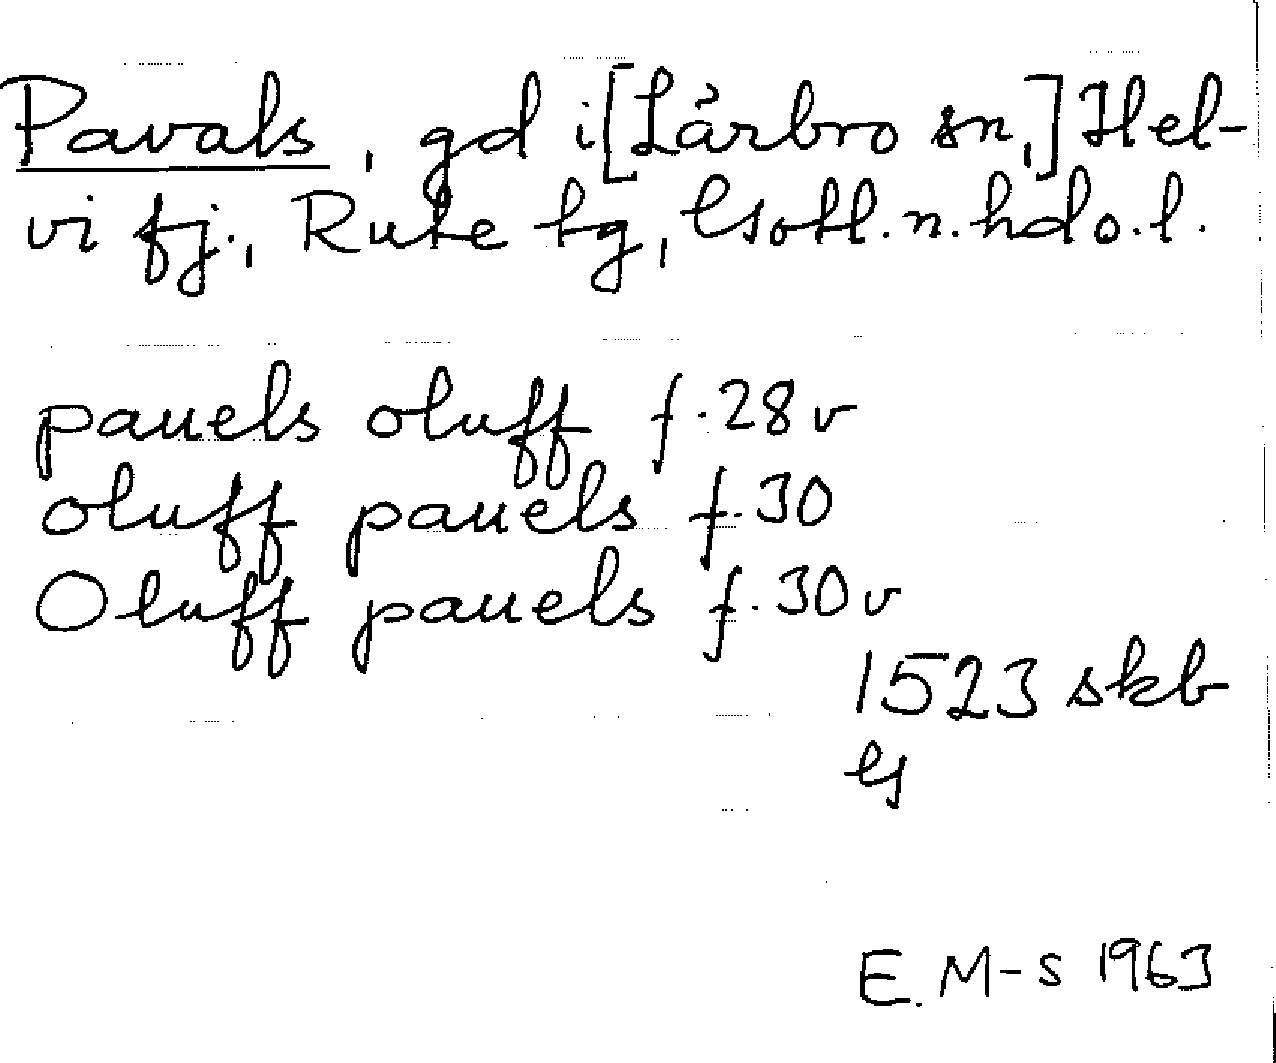 Pavals, gd i [Lärbro sn,] Hel-
vi fj., Rute tg, Gotl. n. hd o. l.
pauels oluff f. 28 v
oluff pauels f. 30
Oluff pauels f. 30 v
1523 skb
G
E. M-S 1963